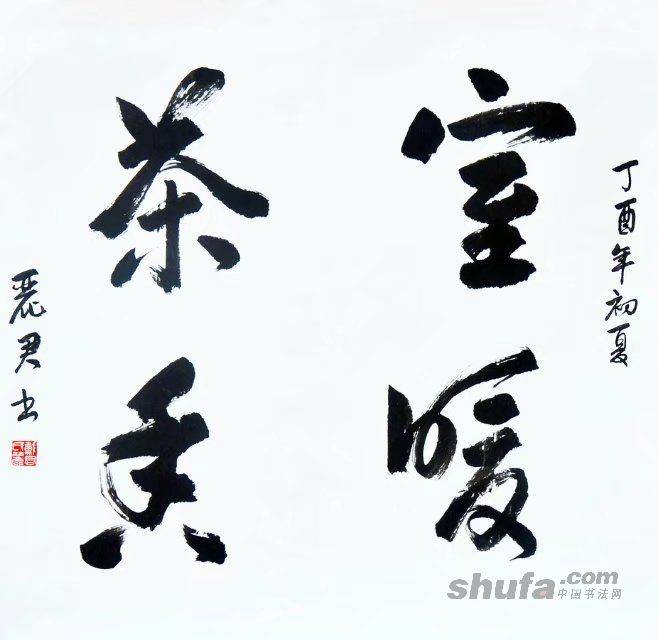 丁酉年初夏
室暖
茶香
麗君书
shufa.com
中国书法网